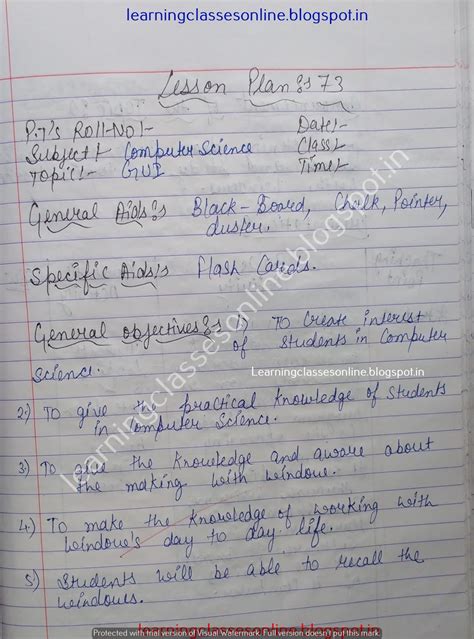 learningclassesonline.blogspot.in
Lesson Plan :- 73
P.T's Roll-No:-
Date:-
Subject:- Computer Science
Class:-
Topic:- GUI
Time:-
General Aids:- Black-Board, Chalk, Pointer,
duster.
Specific Aids:- Flash Cards.
General objectives:- 1) To Create interest
of Students in Computer
Learningclassesonline.blogspot.in
Science.
2:) To give the practical knowledge of students
in Computer Science.
3) To give the knowledge and aware about
the making with window.
4:) To make the knowledge of working with
window's day to day life.
5:) Students will be able to recall the
windows.
learningclassesonline.blogspot.in
Protected with trial version of Visual Watermark. Full version doesn't put this mark.
learningclassesonline.blogspot.in